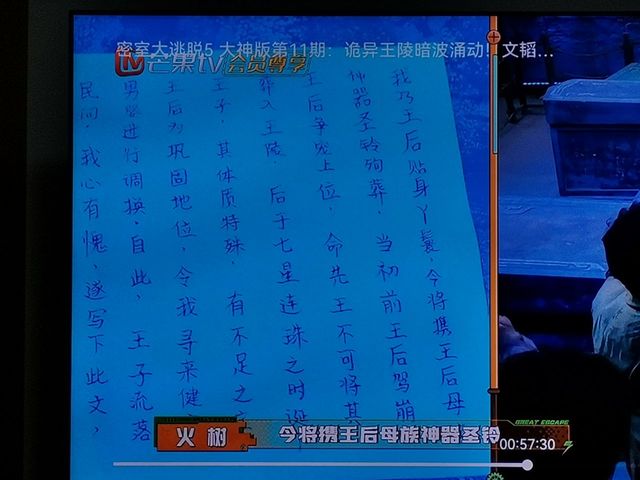 密室大逃脱5 大神版第11期：诡异王陵暗波涌动！文韬...
芒果tv会员尊享
我乃王后贴身丫鬟，今将携王后母
神器圣铃殉葬，当初前王后驾崩
王后争宠上位，命先王不可将其
葬入王陵，后于七星连珠之时诞
王子，其体质特殊，有不足之
王后为巩固地位，令我寻来健
男婴进行调换，自此，王子流落
民间，我心有愧，遂写下此文，
火树
今将携王后母族神器圣铃
GREAT ESCAPE
00:57:30